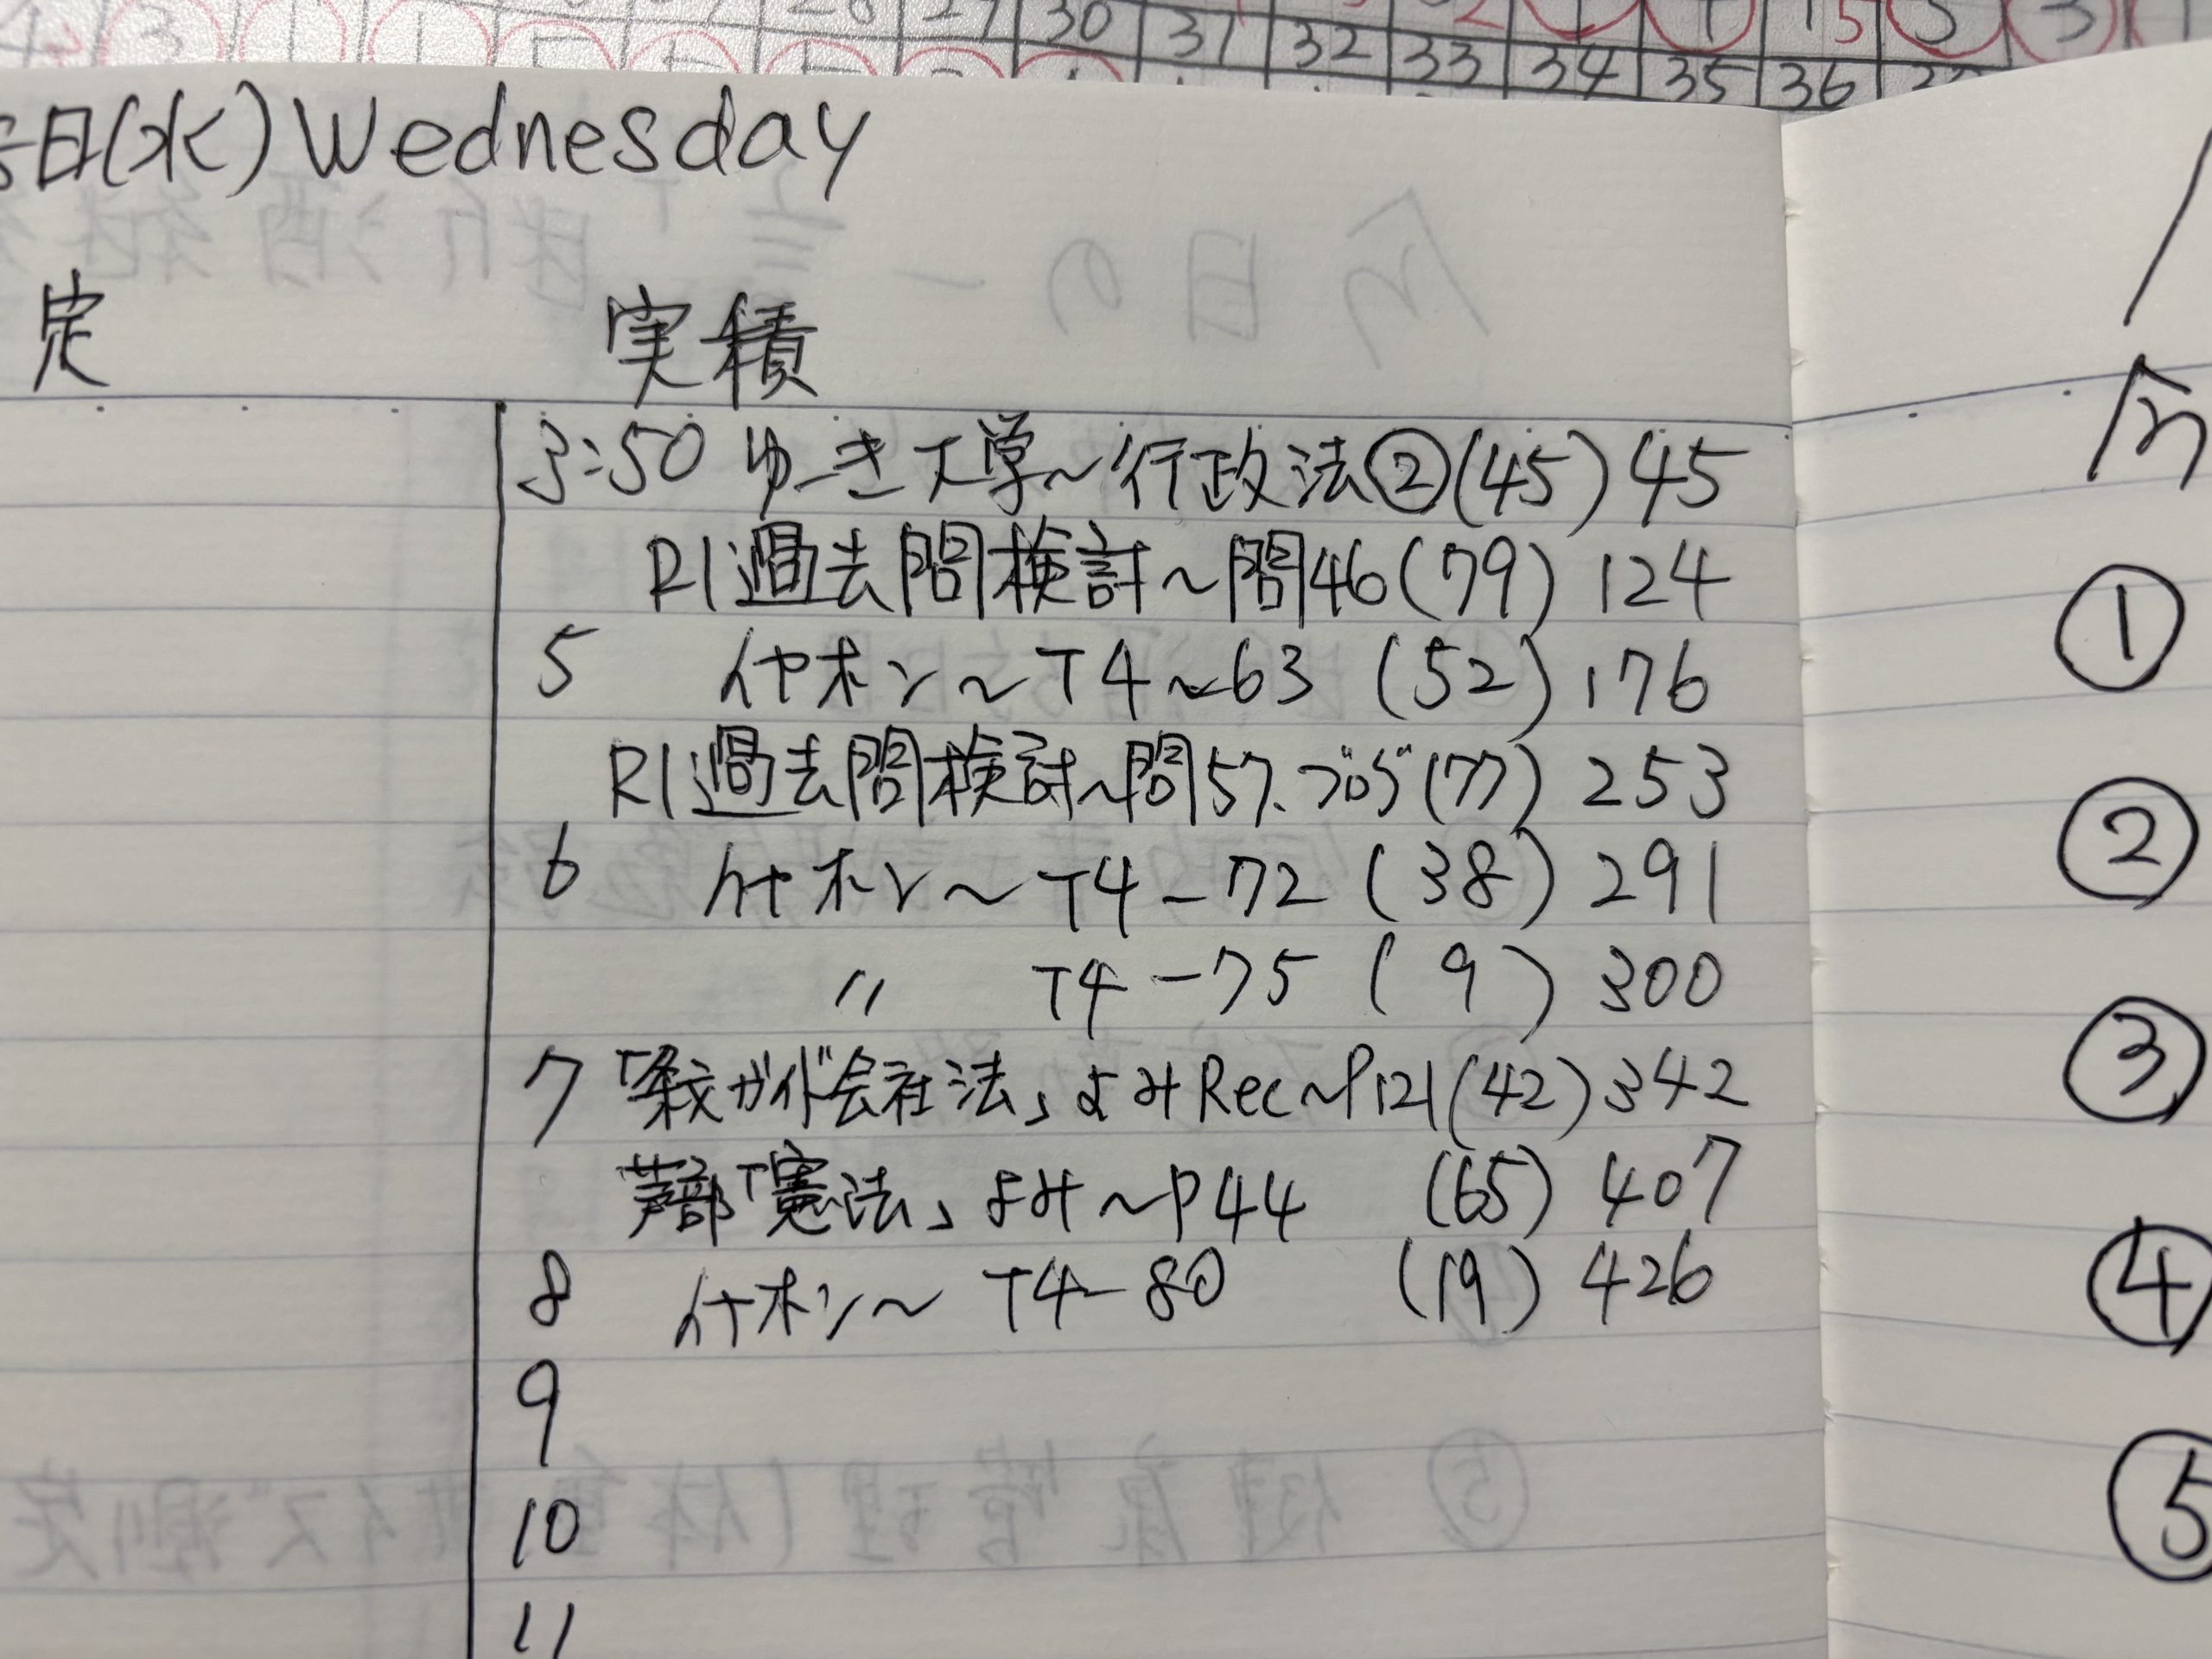 日(水) Wednesday
定 実積
3:50 ゆーき大学～行政法②(45) 45
R1過去問検討～問46(79) 124
5 イヤホン～T4～63 (52) 176
R1過去問検討～問57、ブログ(77) 253
6 イヤホン～T4-72 (38) 291
〃 T4-75 (9) 300
7 「条文ガイド会社法」よみRec～P121(42) 342
芦部「憲法」よみ～P44 (65) 407
8 イヤホン～T4-80 (19) 426
9
10
11
今
①
②
③
④
⑤
30 31 32 33 34 35 36